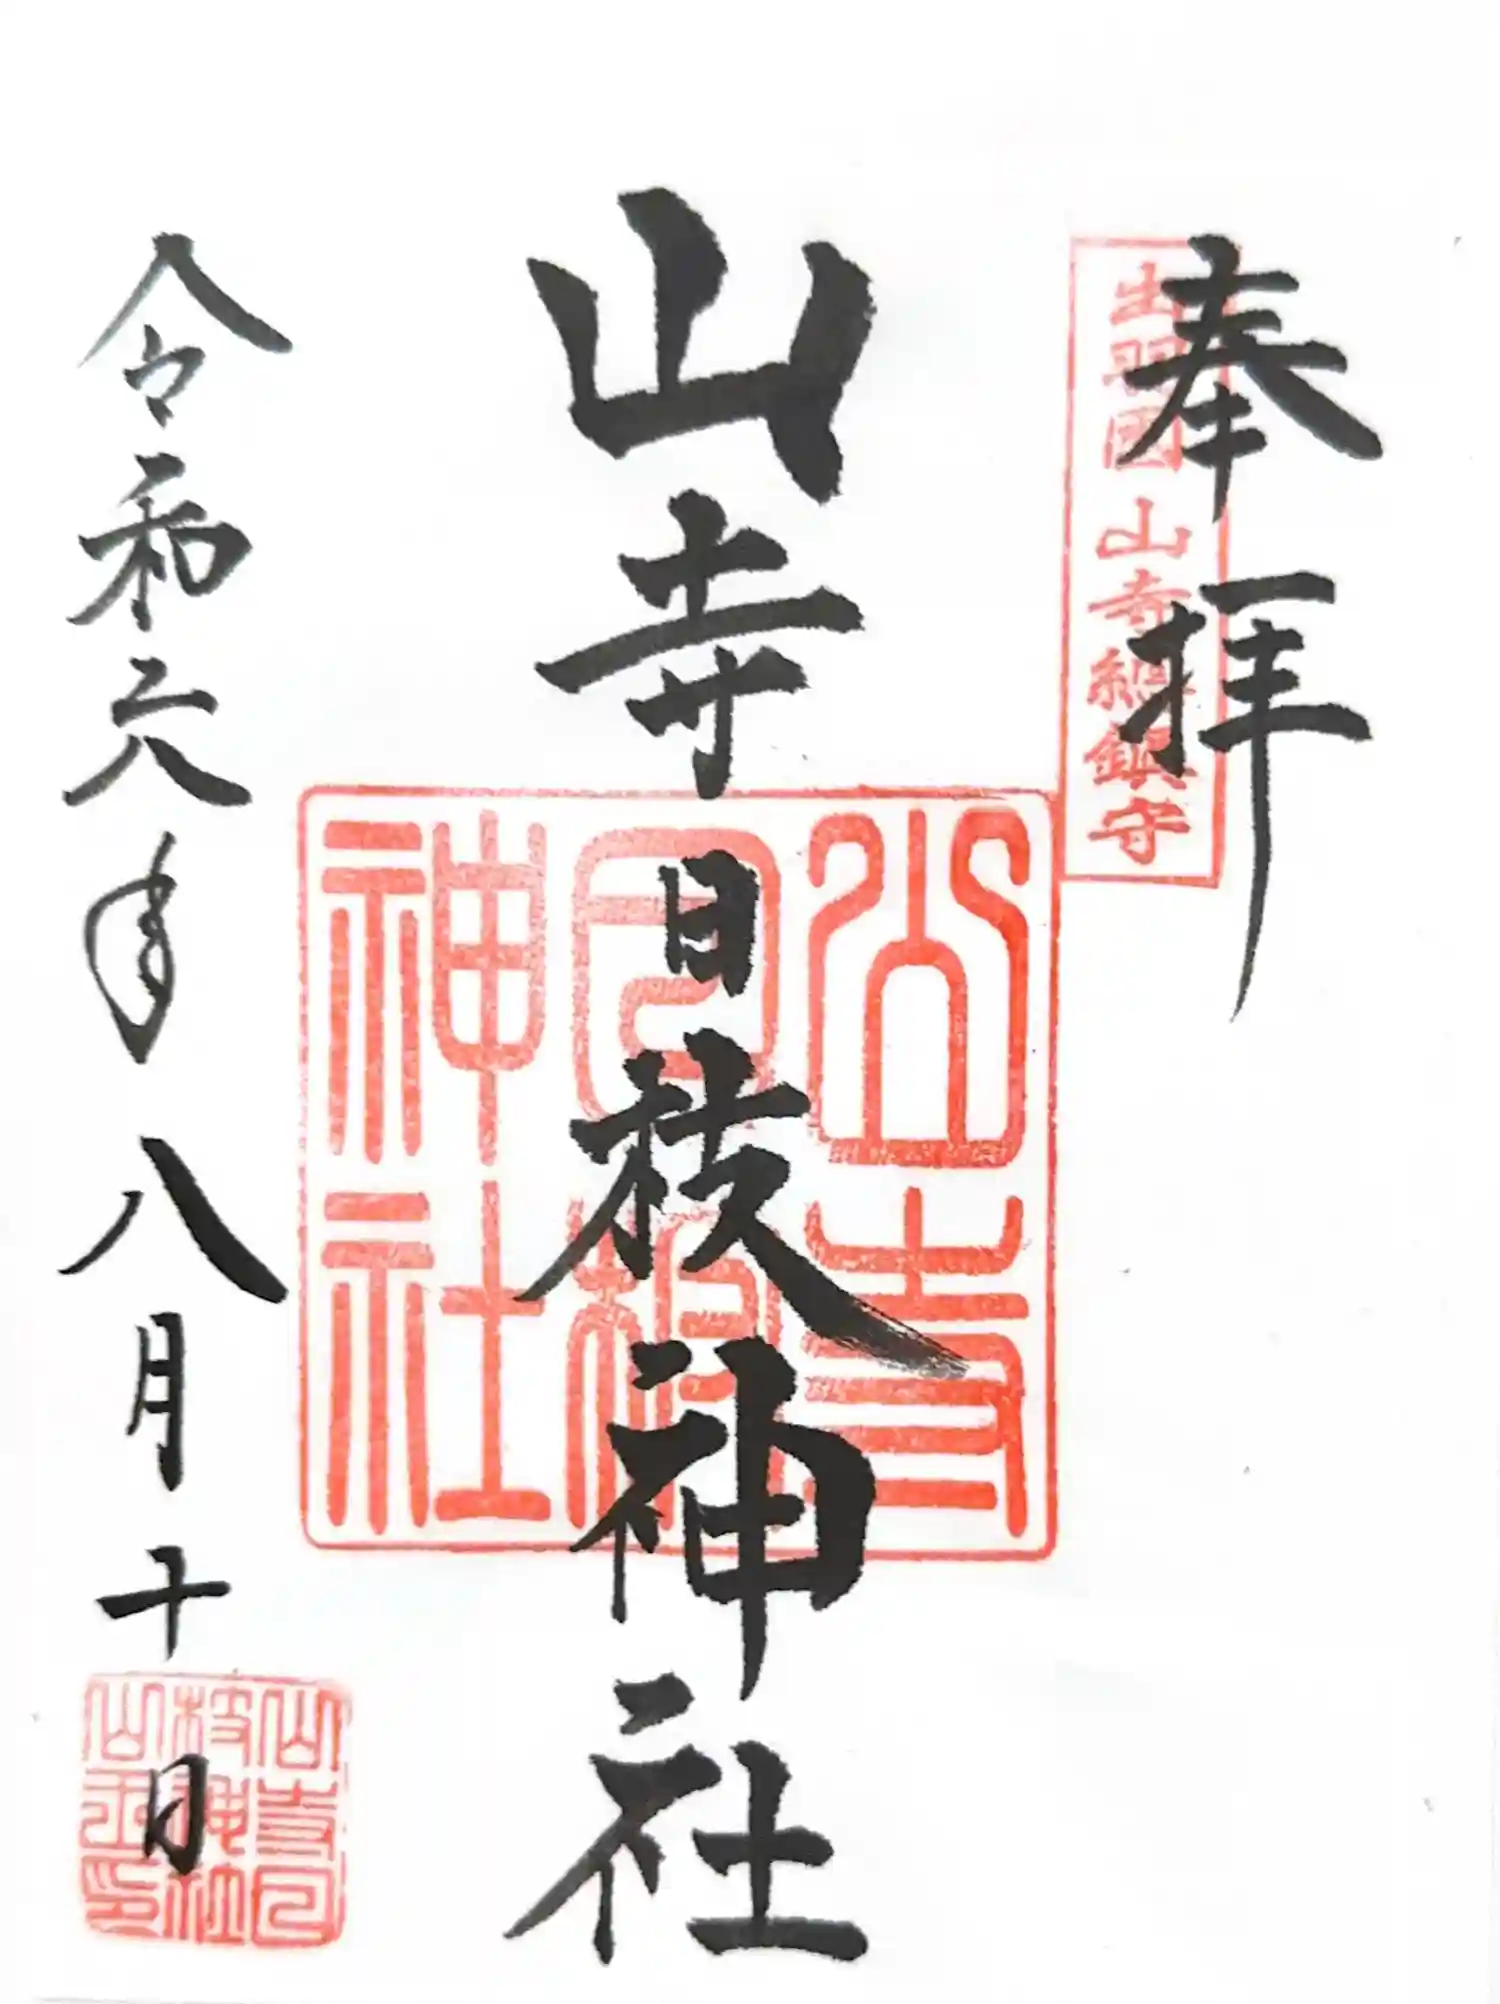 奉拝
出羽国 山寺総鎮守
山寺日枝神社
山寺日枝神社
令和六年八月十日
山寺日枝神社